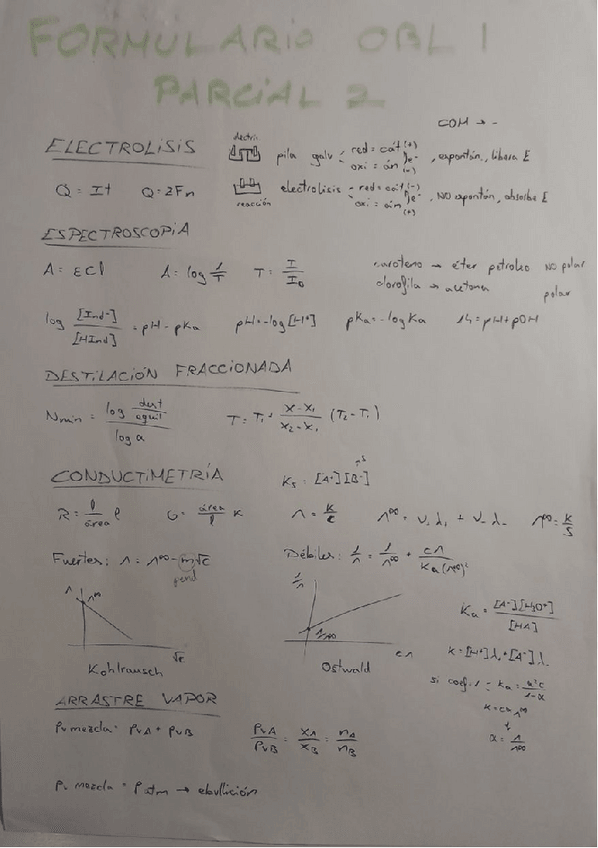 FORMULARIO OBL 1
PARCIAL 2
COM → -
ELECTROLISIS
pila galv red = cát (+) , espontán, libera E
oxi = án (-)
Q = It Q = zFn
electrolisis red = cát (-) , NO espontán, absorbe E
reacción oxi = án (+)
ESPECTROSCOPIA
A = εCl A = log 1/T T = I/I₀
caroteno → éter petróleo NO polar
clorofila → acetona polar
log [Ind⁻]/[HInd] = pH - pKa pH = -log[H⁺] pKa = -log Ka 14 = pH + pOH
DESTILACIÓN FRACCIONADA
Nmin = log dest/aguil / log α T = T₁ + x - x₁ / x₂ - x₁ (T₂ - T₁)
CONDUCTIMETRÍA Ks = [A⁺][B⁻]
R = l/área ρ G = área/l κ Λ = κ/c Λ^∞ = ν₊λ₊ + ν₋λ₋ Λ^∞ = κ/S
Fuertes: Λ = Λ^∞ - m√c Débiles: 1/Λ = 1/Λ^∞ + cΛ / Ka(Λ^∞)²
pend
Λ Λ^∞ √c
1/Λ 1/Λ^∞ cΛ
Ka = [A⁻][H₃O⁺] / [HA]
Kohlrausch Ostwald
κ = [H⁺]λ₊ + [A⁻]λ₋
si coef. 1 → Ka = α²c / 1-α
κ = cαΛ^∞
α = Λ/Λ^∞
ARRASTRE VAPOR
Pv mezcla = PvA + PvB PvA/PvB = xA/xB = nA/nB
Pv mezcla = Patm → ebullición